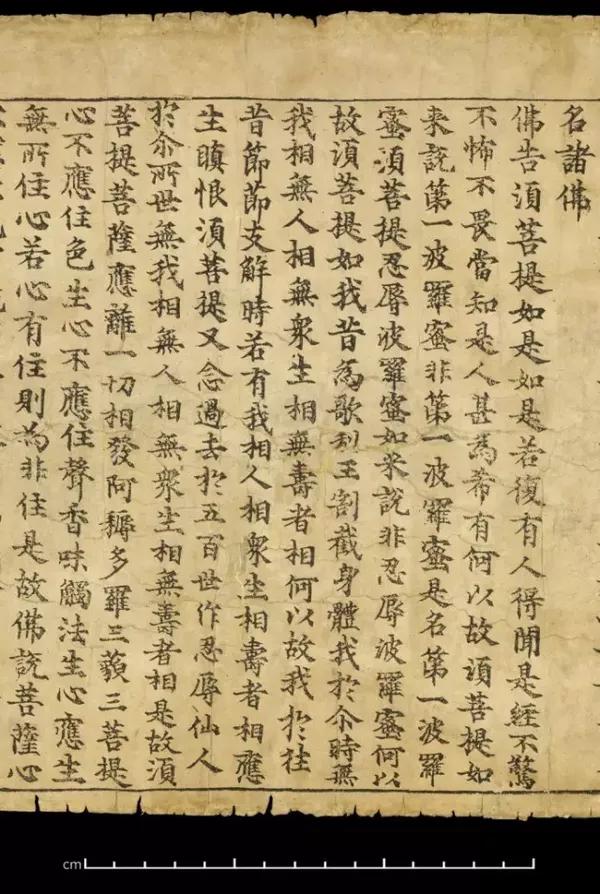 名諸佛
佛告湏菩提如是如是若復有人得聞是經不驚
不怖不畏當知是人甚為希有何以故湏菩提如
来説第一波羅蜜非第一波羅蜜是名第一波羅
蜜湏菩提忍辱波羅蜜如来説非忍辱波羅蜜何以
故湏菩提如我昔為歌利王割截身體我於尒時無
我相無人相無衆生相無壽者相何以故我於往
昔節節支解時若有我相人相衆生相壽者相應
生瞋恨湏菩提又念過去於五百世作忍辱仙人
於尒所世無我相無人相無衆生相無壽者相是故湏
菩提菩薩應離一切相發阿耨多羅三藐三菩提
心不應住色生心不應住聲香味觸法生心應生
無所住心若心有住則為非住是故佛説菩薩心
cm